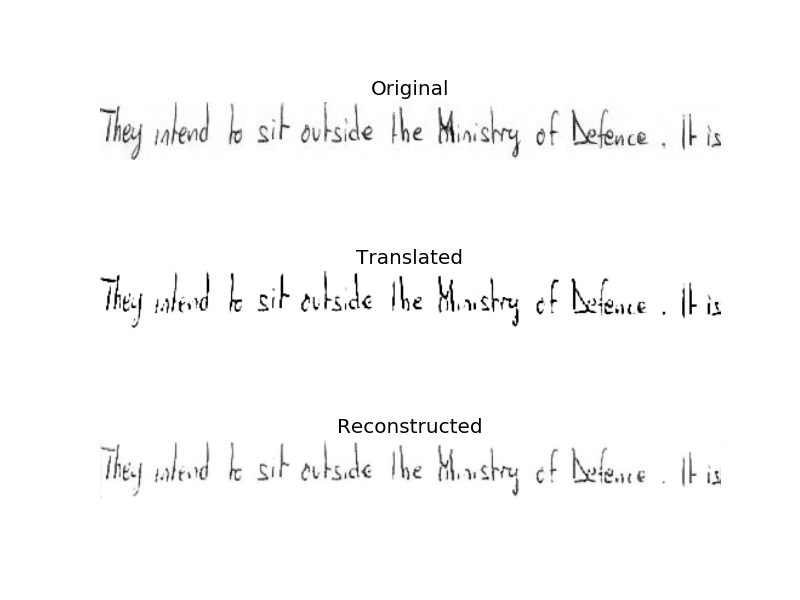 Original
They intend to sit outside the Ministry of Defence . It is
Translated
They intend to sit outside the Ministry of Defence . It is
Reconstructed
They intend to sit outside the Ministry of Defence . It is